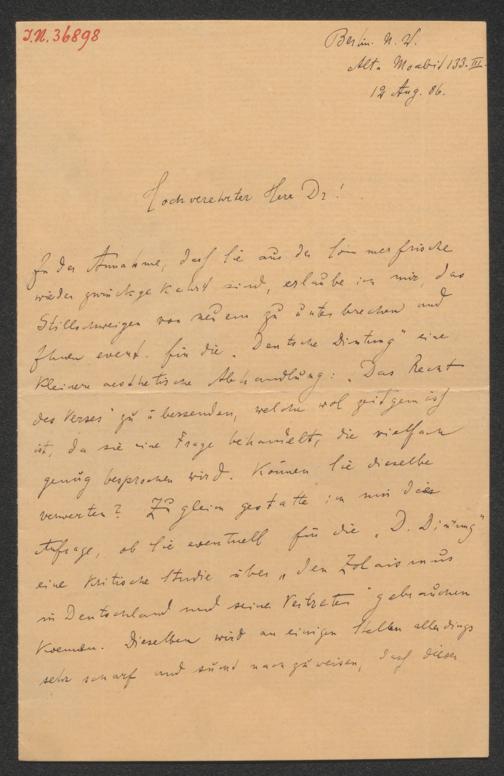 J.N. 36898
Berlin. N. W.
Alt-Moabit 133. III.
12 Aug. 86.
Hochverehrter Herr Dr!
In der Annahme, dass Sie aus der Sommerfrische
wieder zurückgekehrt sind, erlaube ich mir, das
Stillschweigen von neuem zu unterbrechen und
Ihnen event. für die „Deutsche Dichtung" eine
kleinere aesthetische Abhandlung: „Das Recht
des Verses" zu übersenden, welche wol zeitgemäss
ist, da sie eine Frage behandelt, die vielfach
genug besprochen wird. Können Sie dieselbe
verwerten? Zugleich gestatte ich mir die
Anfrage, ob Sie eventuell für die „D. Dichtung"
eine kritische Studie über „den Zolaismus
in Deutschland und seine Vertreter" gebrauchen
koennen. Dieselbe wird an einigen Stellen allerdings
sehr scharf und sucht nachzuweisen, dass dieser